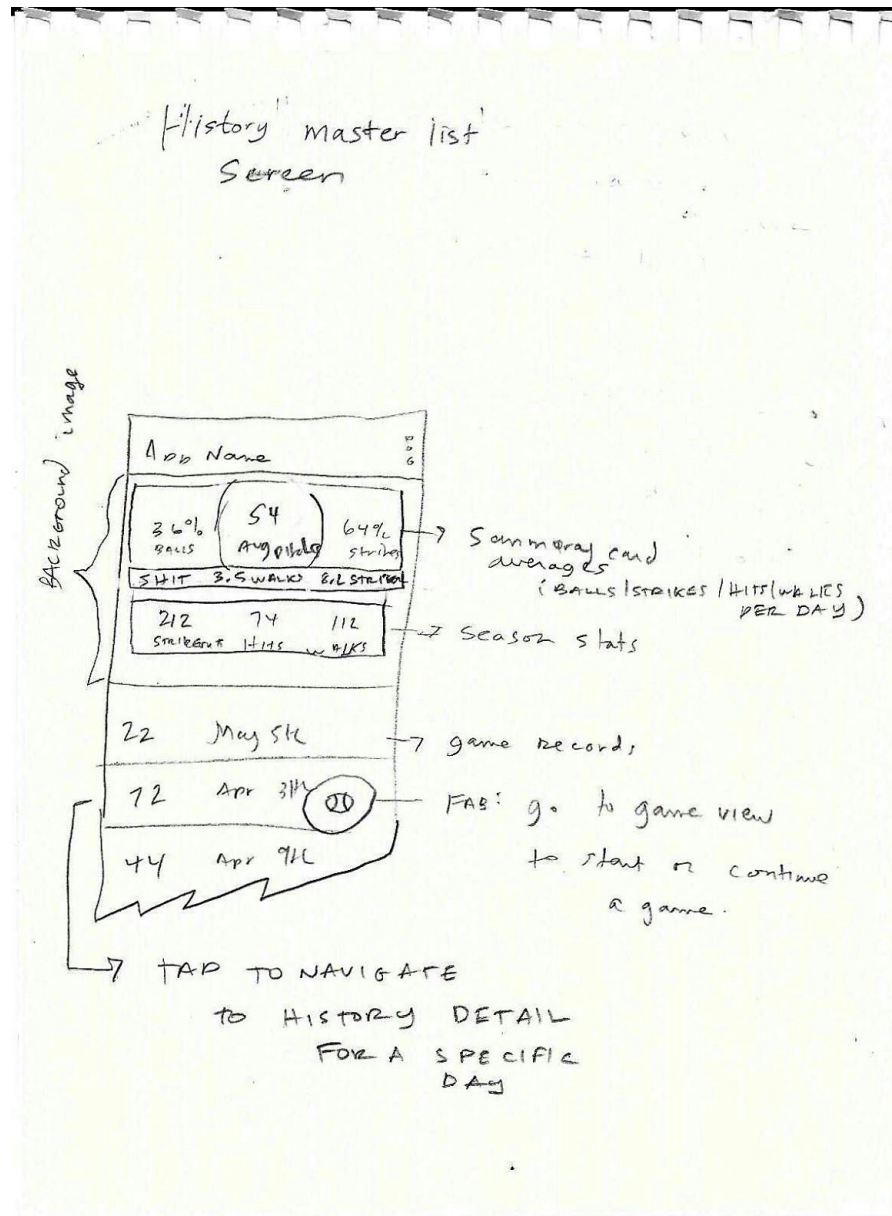 "History" master list
Screen
BACKGROUND image
App Name
36%
BALLS
54
Avg pitches
64%
Strikes
5 HIT 3.5 WALKS
212
STRIKEOUTS
74
HITS
112
WALKS
Summary card
averages
(BALLS/STRIKES/HITS/WALKS
PER DAY)
Season stats
22 May 5th
game records
72 Apr
FAB: go to game view
to start or continue
a game.
44 Apr 9th
TAP TO NAVIGATE
TO HISTORY DETAIL
FOR A SPECIFIC
DAY